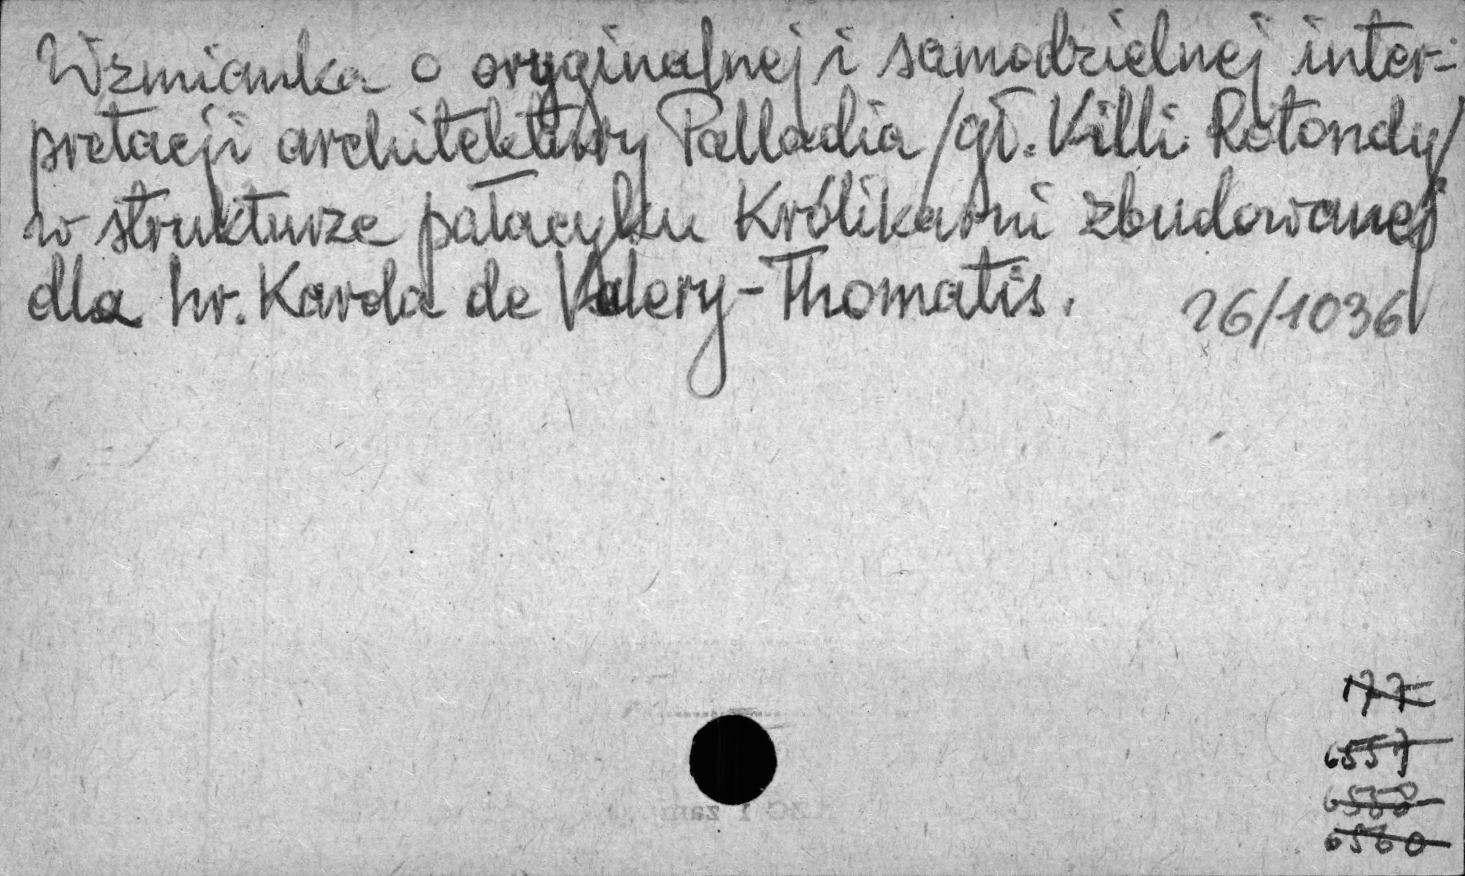 Wzmianka o oryginalnej i samodzielnej inter-
pretacji architektury Palladia /gł. Villi Rotondy/
w strukturze pałacyku Królikarni zbudowanej
dla hr. Karola de Valery-Thomatis.
26/1036
177
6557
6560